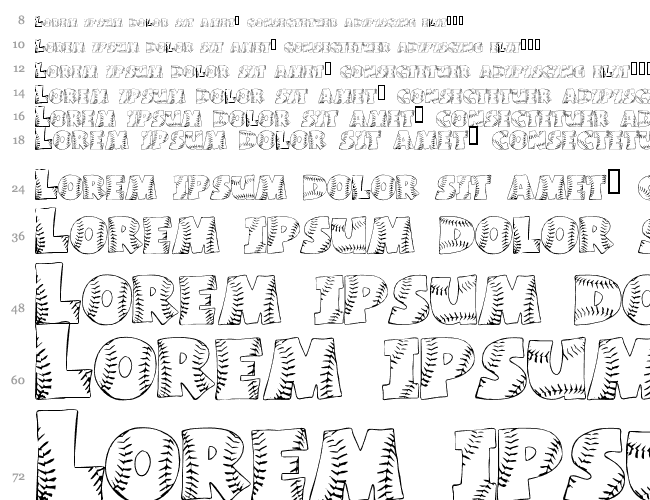 8 Lorem ipsum dolor sit amet▯ consectetuer adipiscing elit▯▯▯
10 Lorem ipsum dolor sit amet▯ consectetuer adipiscing elit▯▯▯
12 Lorem ipsum dolor sit amet▯ consectetuer adipiscing elit▯▯▯
14 Lorem ipsum dolor sit amet▯ consectetuer adipisc
16 Lorem ipsum dolor sit amet▯ consectetuer ad
18 Lorem ipsum dolor sit amet▯ consectetu
24 Lorem ipsum dolor sit amet▯
36 Lorem ipsum dolor s
48 Lorem ipsum do
60 Lorem ipsum
72 Lorem ipsu